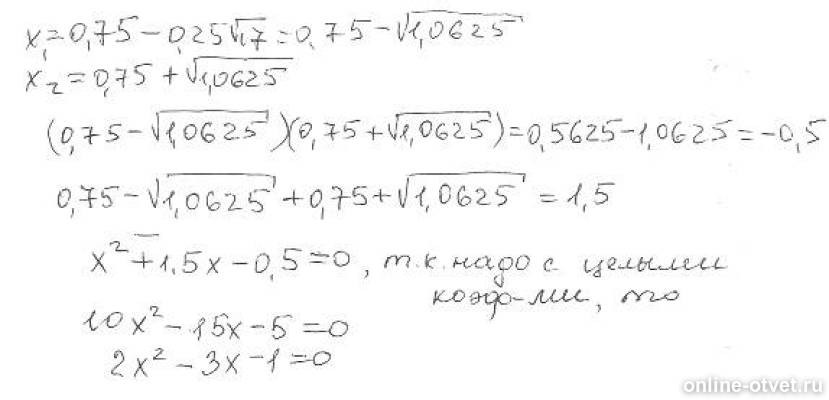 x₁=0,75-0,25√17=0,75-√1,0625
x₂=0,75+√1,0625
(0,75-√1,0625)(0,75+√1,0625)=0,5625-1,0625=-0,5
0,75-√1,0625+0,75+√1,0625=1,5
x²-1,5x-0,5=0, т.к. надо с целыми
коэф-ми, то
10x²-15x-5=0
2x²-3x-1=0
online-otvet.ru